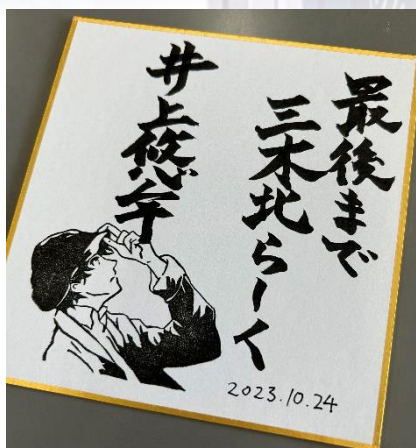 最後まで
三木北らしく
井上悠
2023.10.24